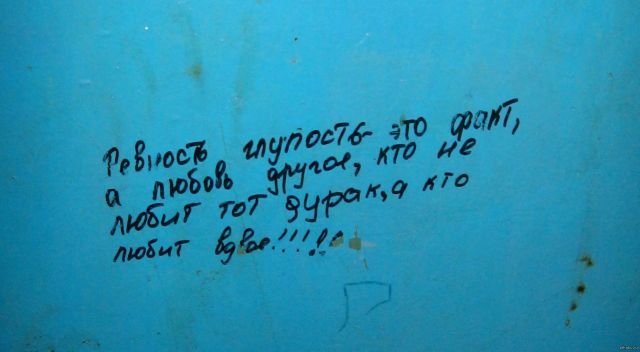 Ревность глупость- это факт,
а любовь другое, кто не
любит тот дурак, а кто
любит вдвое!!!!!